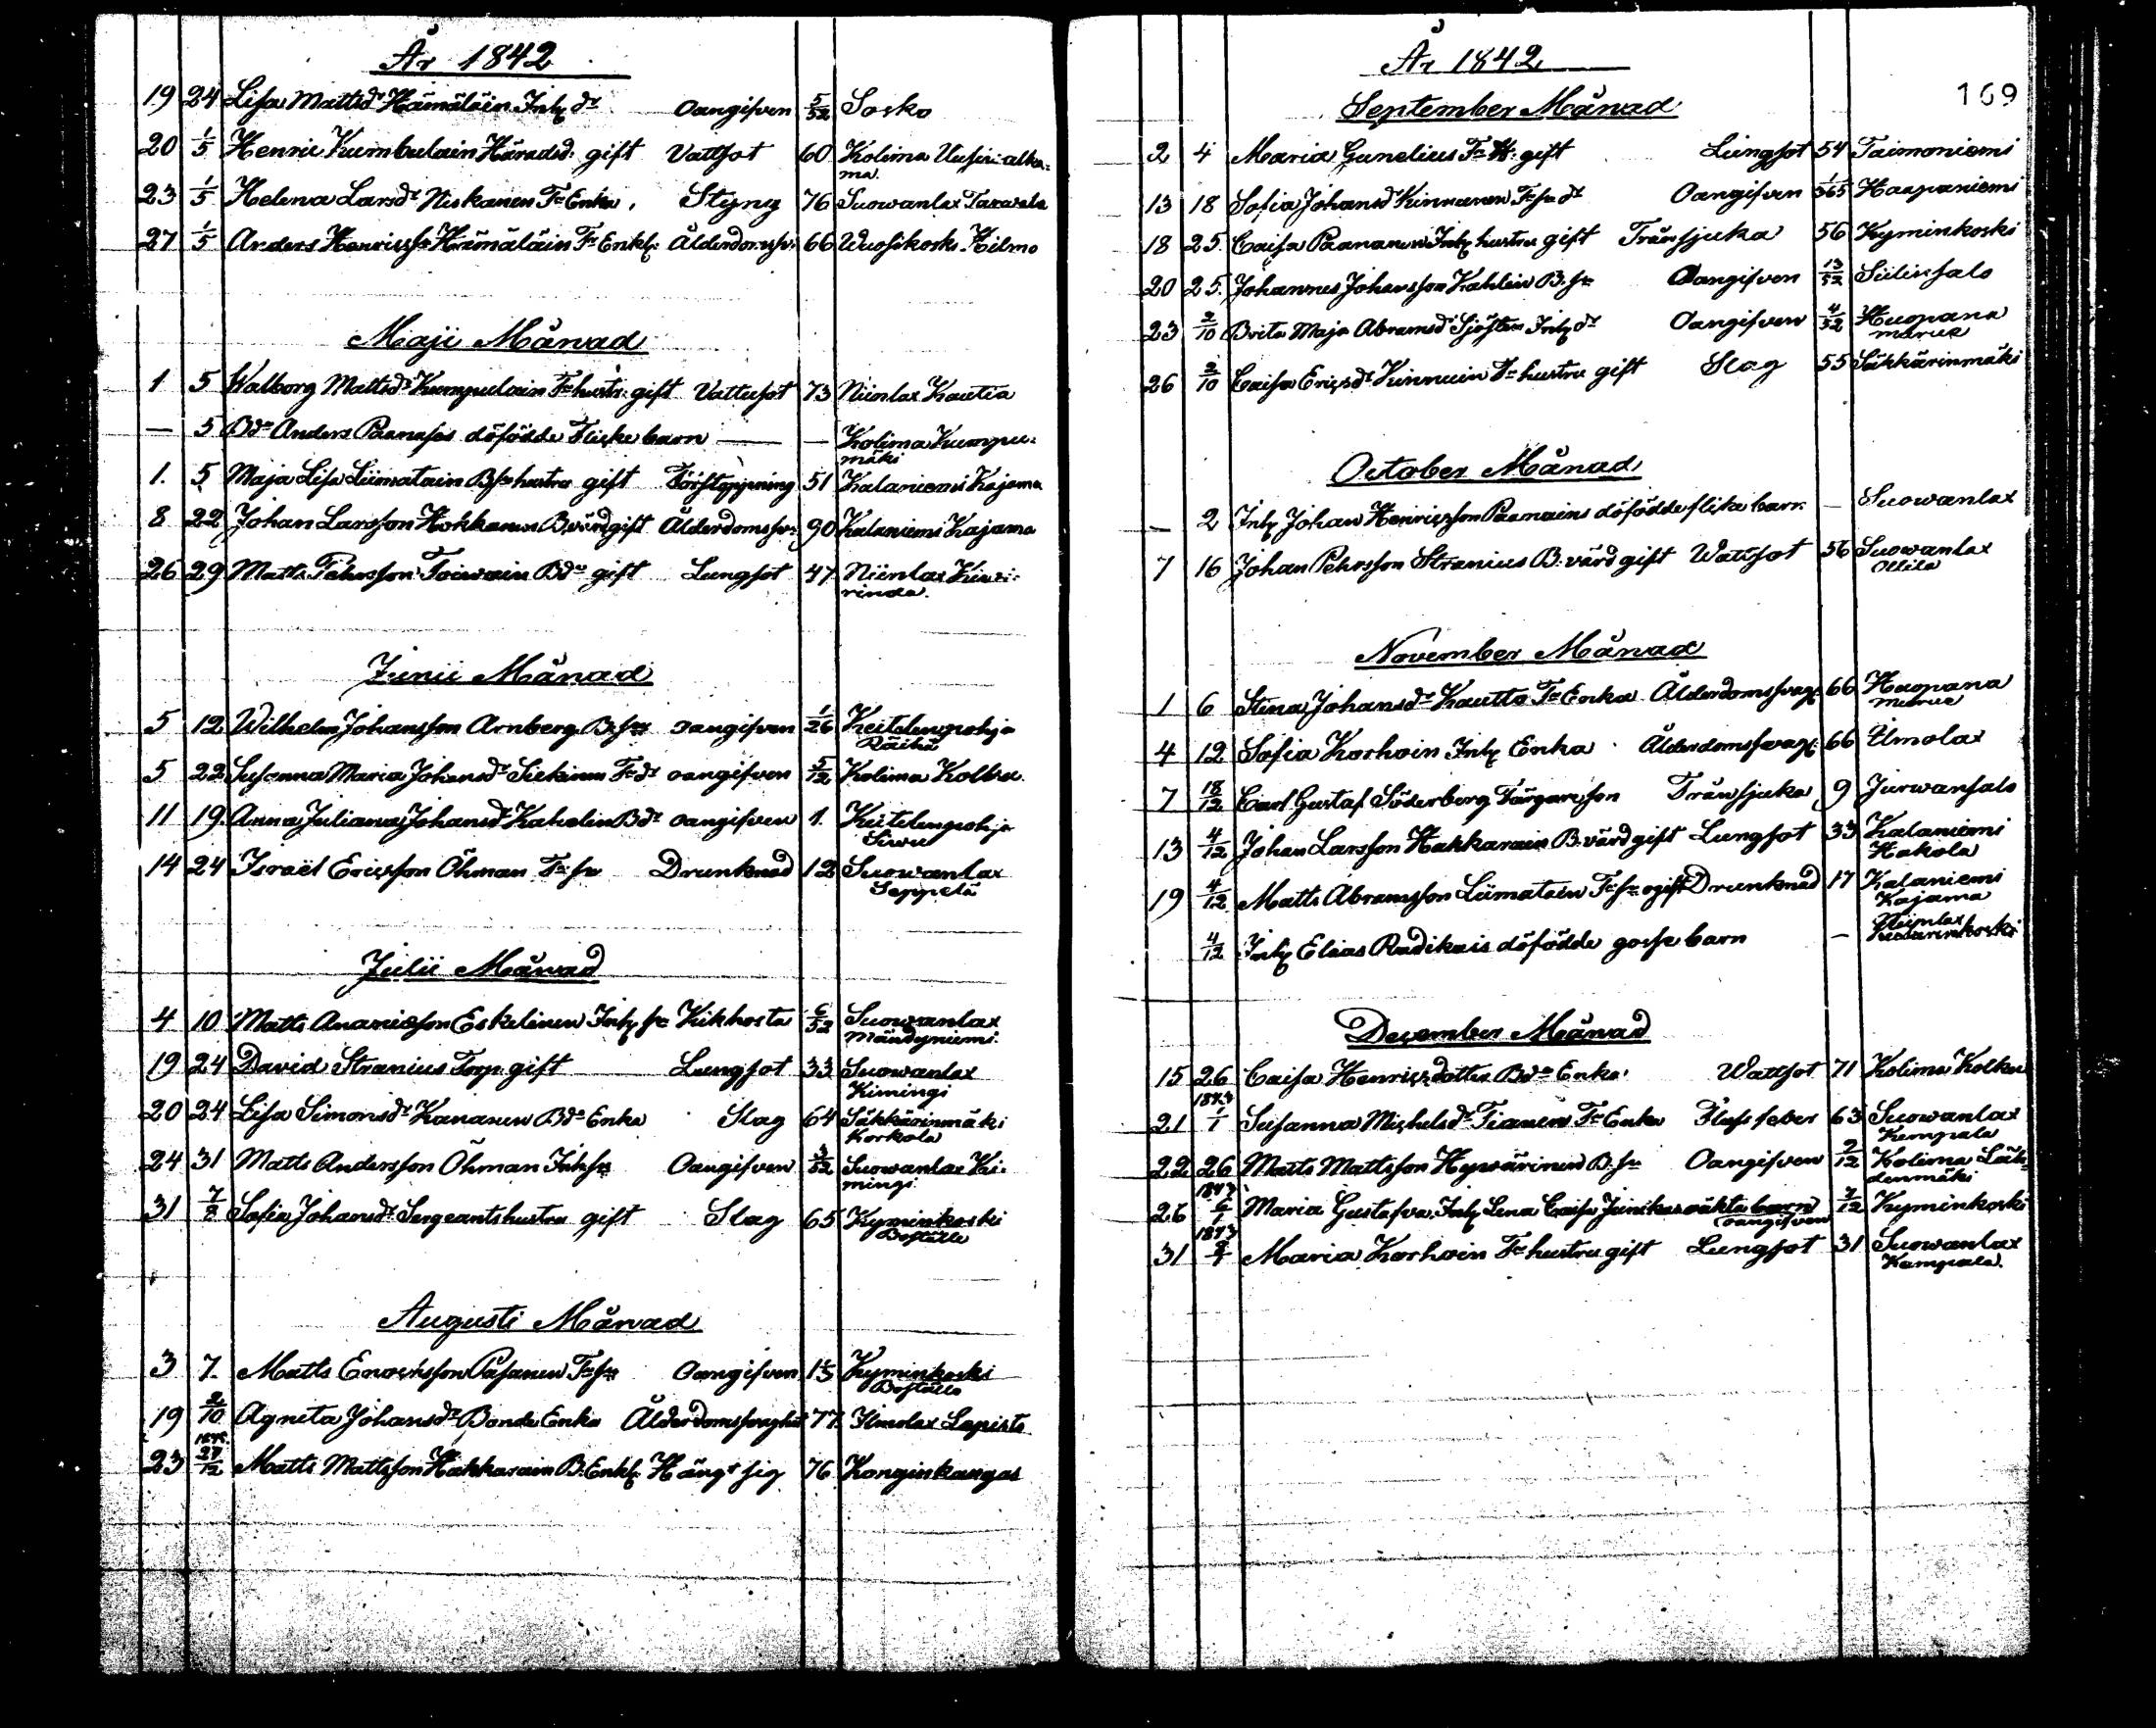 År 1842
19 24 Lisa Mattsdr Hämäläin Inh dr Oangifven 5/52 Sosko
20 1/5 Henric Kumbulain Häradsd. gift Vattsot 60 Kolima Uusin alka=
ma.
23 1/5 Helena Larsdr Niskanen Fr Enka. Styng 76 Suowanlax Taxwala
27 1/5 Anders Henricsson Hämäläin Fr Enkl. Ålderdomssv. 66 Wuosikoski Hilmo
Maji Månad
1 5 Walborg Mattsdr Kumpulain Fr hustr. gift Vattusot 73 Niinlax Kautia
— 5 Bdn Anders Paanases döfödde Flicke barn — — Kolima Kumpu=
mäki
1. 5 Maja Lisa Liimatain Bfn hustru gift Förstoppning 51 Kalaniemi Kajama
8 22 Johan Larsson Hakkarain B.värd gift Ålderdomssv. 90 Kalaniemi Kajama
26 29 Matts Pehrsson Toiwain Bdn gift Lungsot 47 Niinlax Kiwi=
rinda.
Junii Månad
5 12 Wilhelm Johansson Arnberg B. sn oangifven 1/26 Keitelenpohja
Räihä
5 22 Susanna Maria Johansdr Siekinen Fr dr oangifven 5/12 Kolima Kolku.
11 19. Anna Juliana Johansdr Kahelin Bdr oangifven 1. Keitelenpohja
Siwu
14 24 Israël Ericsson Öhman Fr sn Drunknad 12 Suowanlax
Seppelä
Julii Månad
4 10 Matts Ananiæson Eskelinen Inh sn Kikhosta 6/52 Suowanlax
Mändyniemi.
19 24 David Stranius Torp. gift Lungsot 33 Suowanlax
Kimingi
20 24 Lisa Simonsdr Kananen Bdn Enka Slag 64 Säkkärinmäki
Korkola
24 31 Matts Andersson Öhman Inh sn Oangifven 3/52 Suowanlax Ki=
mingi
31 7/8 Sofia Johansdr Sergeants hustru gift Slag 65 Kyminkoski
Boställe
Augusti Månad
3 7. Matts Enochsson Pasanen Fr sn Oangifven Kyminkoski
Boställe
19 2/10 Agneta Johansdr Bonde Enka Ålderdomssvaghet 77. Ilmolax Lapisto
23 27/12 Matts Mattsson Hakkarain B. Enkl. Hängt sig 76 Konginkangas
År 1842
169
September Månad
2 4 Maria Gunelius Fr H. gift Lungsot 54 Taimoniemi
13 18 Sofia Johansd Kinnunen Fr sn dr Oangifven 1/365 Haapaniemi
18 25. Caisa Paananen Inh hustru gift Trånsjuka 56 Kyminkoski
20 25. Johannes Johansson Kahlin B. sn Oangifven 13/52 Siilinsalo
23 2/10 Brita Maja Abramsdr Sjösten Inh dr Oangifven 4/52 Huopana
marua
26 2/10 Caisa Ericsdr Kinnuin Fr hustru gift Slag 55 Säkkärinmäki
October Månad
— 2 Inh Johan Henricsson Paanains döfödde flika barn — Suowanlax
7 16 Johan Pehrsson Stranius B. värd gift Wattsot 56 Suowanlax
Ollila
November Månad
1 6 Stina Johansdr Kautto Fr Enka Ålderdomssvagh 66 Huopana
marua
4 12 Sofia Korhoin Inh Enka Ålderdomssvagh. 66 Ilmolax
7 18/12 Carl Gustaf Söderberg Färgareson Trånsjuka 9 Jurwansalo
13 4/12 Johan Larsson Hakkarain B. värd gift Lungsot 33 Kalaniemi
Hakola
19 4/12 Matts Abramsson Liimatain Fr sn ogift Drunknad 17 Kalaniemi
Kajama
4/12 Inh Elias Rudikais döfödde gosse barn — Niinlax
December Månad
15 26 Caisa Henricsdotter Bdn Enka Wattsot 71 Kolima Kolku
1843
21 1/1 Susanna Michelsdr Tiainen Fr Enka Flussfeber 63 Suowanlax
Kempala
22 26 Matts Mattsson Hywärinen B. sn Oangifven 2/12 Kolima Läh=
denmäki
1843
26 6/1 Maria Gustafva, Inh Lena Caisa Junikas oäkta barn Kyminkoski
oangifven
1843
31 8/1 Maria Korhoin Fr hustru gift Lungsot 31 Suowanlax
Kempala.